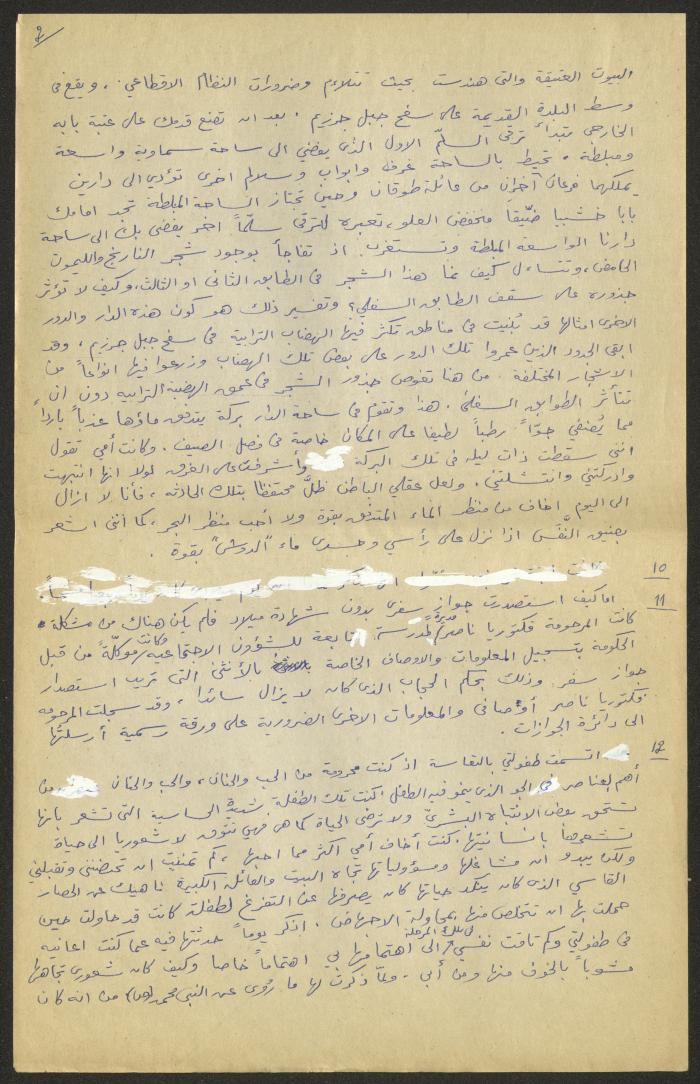 2
البيوت العتيقة والتي هندست بحيث تتلاءم وضرورات النظام الاقطاعي . ويقع في
وسط البلدة القديمة على سفح جبل جرزيم . بعد ان تضع قدمك على عتبة بابه
الخارجي تبدأ ترقى السلّم الاول الذي يفضي الى ساحة سماوية واسعة
ومبلطة . تحيط بالساحة غرف وابواب وسلالم اخرى تؤدي الى دارين
يملكهما فرعان آخران من عائلة طوقان وحين تجتاز الساحة المبلطة تجد امامك
بابا خشبيا ضيّقا منخفض العلو، تعبره لترقى سلّماً آخر يفضي بك الى ساحة
دارنا الواسعة المبلطة وتستغرب اذ تفاجأ بوجود شجر النارنج والليمون
الحامض، وتتساءل كيف نما هذا الشجر في الطابق الثاني او الثالث، وكيف لا تؤثر
جذوره على سقف الطابق السفلي؟ وتفسير ذلك هو كون هذه الدار والدور
الاخرى امثالها قد بُنيت في مناطق تكثر فيها الهضاب الترابية في سفح جبل جرزيم، وقد
ابقى الجدود الذين عمروا تلك الدور على بعض تلك الهضاب وزرعوا فيها انواعاً من
الاشجار المختلفة . من هنا تغوص جذور الشجر في عمق الهضبة الترابيه دون ان
تتأثر الطوابق السفلى . هذا وتقوم في ساحة الدار بركة يتدفق ماؤها عذباً بارداً
مما يُضفي جوّاً رطباً لطيفا على المكان خاصة في فصل الصيف . وكانت أمي تقول
انني سقطت ذات ليله في تلك البركة وأشرفت على الغرق لولا انها انتبهت
وادركتني وانتشلتني . ولعل عقلي الباطن ظلّ محتفظا بتلك الحادثه ، فأنا لا ازال
الى اليوم اخاف من منظر الماء المتدفق بقوة ولا احب منظر البحر، كما أنني اشعر
بضيق النَّفَس اذا نزل على رأسي وجسدي ماء "الدوش" بقوة .
10
11 اما كيف استصدرت جواز سفري بدون شهادة ميلاد فلم يكن هناك من مشكلة .
كانت المرحومة فكتوريا ناصر مديرة لمدرسة تابعة للشؤون الاجتماعيه وكانت موكلّة من قبل
الحكومة بتسجيل المعلومات والاوصاف الخاصة بالأنثى التي تريد استصدار
جواز سفر وذلك بحكم الحجاب الذي كان لا يزال سائدا ، وقد سجلت المرحومه
فكتوريا ناصر أوصافي والمعلومات الاخرى الضرورية على ورقة رسمية أرسلتها
الى دائرة الجوازات .
12 اتسمت طفولتي بالتعاسة اذ كنت محرومة من الحب والحنان ، والحب والحنان من
أهم العناصر في الجو الذي ينمو فيه الطفل . كنت تلك الطفلة شديدة الحساسية التي تشعر بانها
تستحق بعض الانتباه البشري ولا ترضى الحياة كما هي فهي تتوق لا شعوريا الى حياة
تشعرها بانسانيتها . كنت أخاف أمي اكثر مما احبها ، كم تمنيت ان تحتضنني وتقبلني
ولكن يبدو ان مشاغلها ومسؤولياتها تجاه البيت والعائلة الكبيرة ناهيك عن الحصار
القاسي الذي كان ينكد حياتها كان يصرفها عن التفرغ لطفلة كانت قد حاولت حين
حملت بها ان تتخلص منها بمحاولة الاجهاض . اذكر يوماً حدثتها فيه عما كنت اعانيه
في طفولتي وكم تاقت نفسي في تلك المرحلة الى اهتمامها بي اهتماماً خاصا وكيف كان شعوري تجاهها
مشوباً بالخوف منها ومن أبي . ولمّا ذكرت لها ما رُوي عن النبي محمد (ص) من انه كان